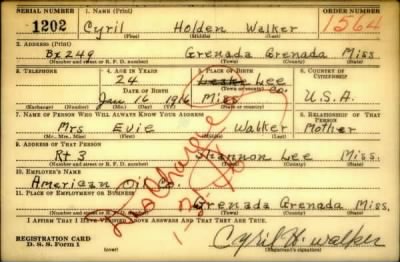 SERIAL NUMBER 1. NAME (Print) ORDER NUMBER
1202 Cyril Holden Walker 1564
(First) (Middle) (Last)
2. ADDRESS (Print)
Bx 249 Grenada Grenada Miss
(Number and street or R. F. D. number) (Town) (County) (State)
3. TELEPHONE 4. AGE IN YEARS 5. PLACE OF BIRTH 6. COUNTRY OF CITIZENSHIP
24 Lee
DATE OF BIRTH (Town or county) Co.
Jan 16 1916 Miss U.S.A.
(Exchange) (Number) (Mo.) (Day) (Yr.) (State or country)
7. NAME OF PERSON WHO WILL ALWAYS KNOW YOUR ADDRESS 8. RELATIONSHIP OF THAT PERSON
Mrs Evie Walker Mother
(Mr., Mrs., Miss) (First) (Middle) (Last)
9. ADDRESS OF THAT PERSON
Rt 3 Shannon Lee Miss.
(Number and street or R. F. D. number) (Town) (County) (State)
10. EMPLOYER'S NAME
American Oil Co.
11. PLACE OF EMPLOYMENT OR BUSINESS
Grenada Grenada Miss.
(Number and street or R. F. D. number) (Town) (County) (State)
I AFFIRM THAT I HAVE VERIFIED ABOVE ANSWERS AND THAT THEY ARE TRUE.
REGISTRATION CARD
D. S. S. Form 1 (over) Cyril H. Walker
(Registrant's signature)
Discharge